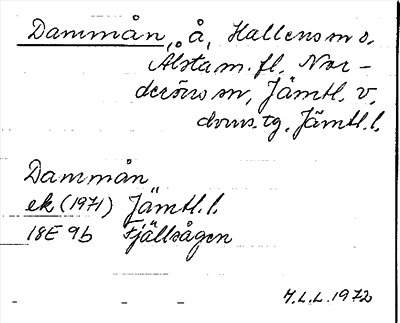 Dammån, å, Hallens m o.
Ålsta m. fl. Nor-
deröns sn, Jämtl. v.
doms.tg. Jämtl.l.
Dammån
ek (1971) Jämtl.l.
18E 9b Fjällsågen
H.L.L. 1972